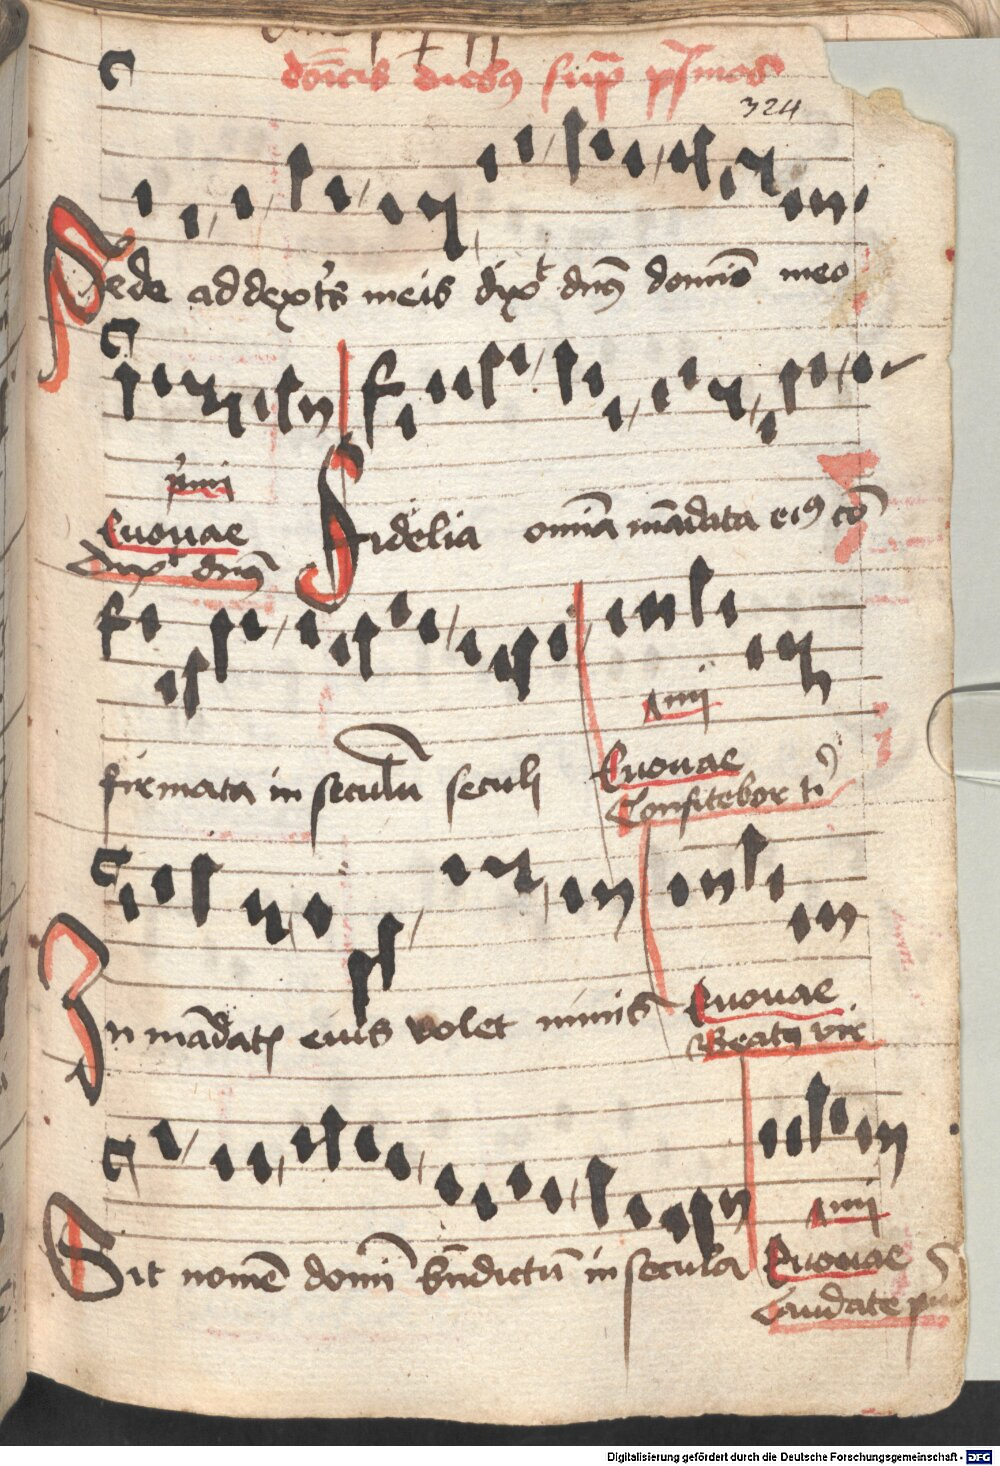 dōicis diebꝰ sup̄ pſmos
324
Sede ad dext's meis dixᵗ dn̄s domīo meo
p'mi
Euouae
Dixᵗ dn̄s
Fidelia om̄ia mādata eiꝰ cō
firmata in seculū seculi
Euouae
Confitebor tᵢ
In mādatꝭ eius volet nimis
Euouae
Beatꝰ vir
Sit nomē domī bn̄dictū in secula
Euouae
Laudate
Digitalisierung gefördert durch die Deutsche Forschungsgemeinschaft - DFG